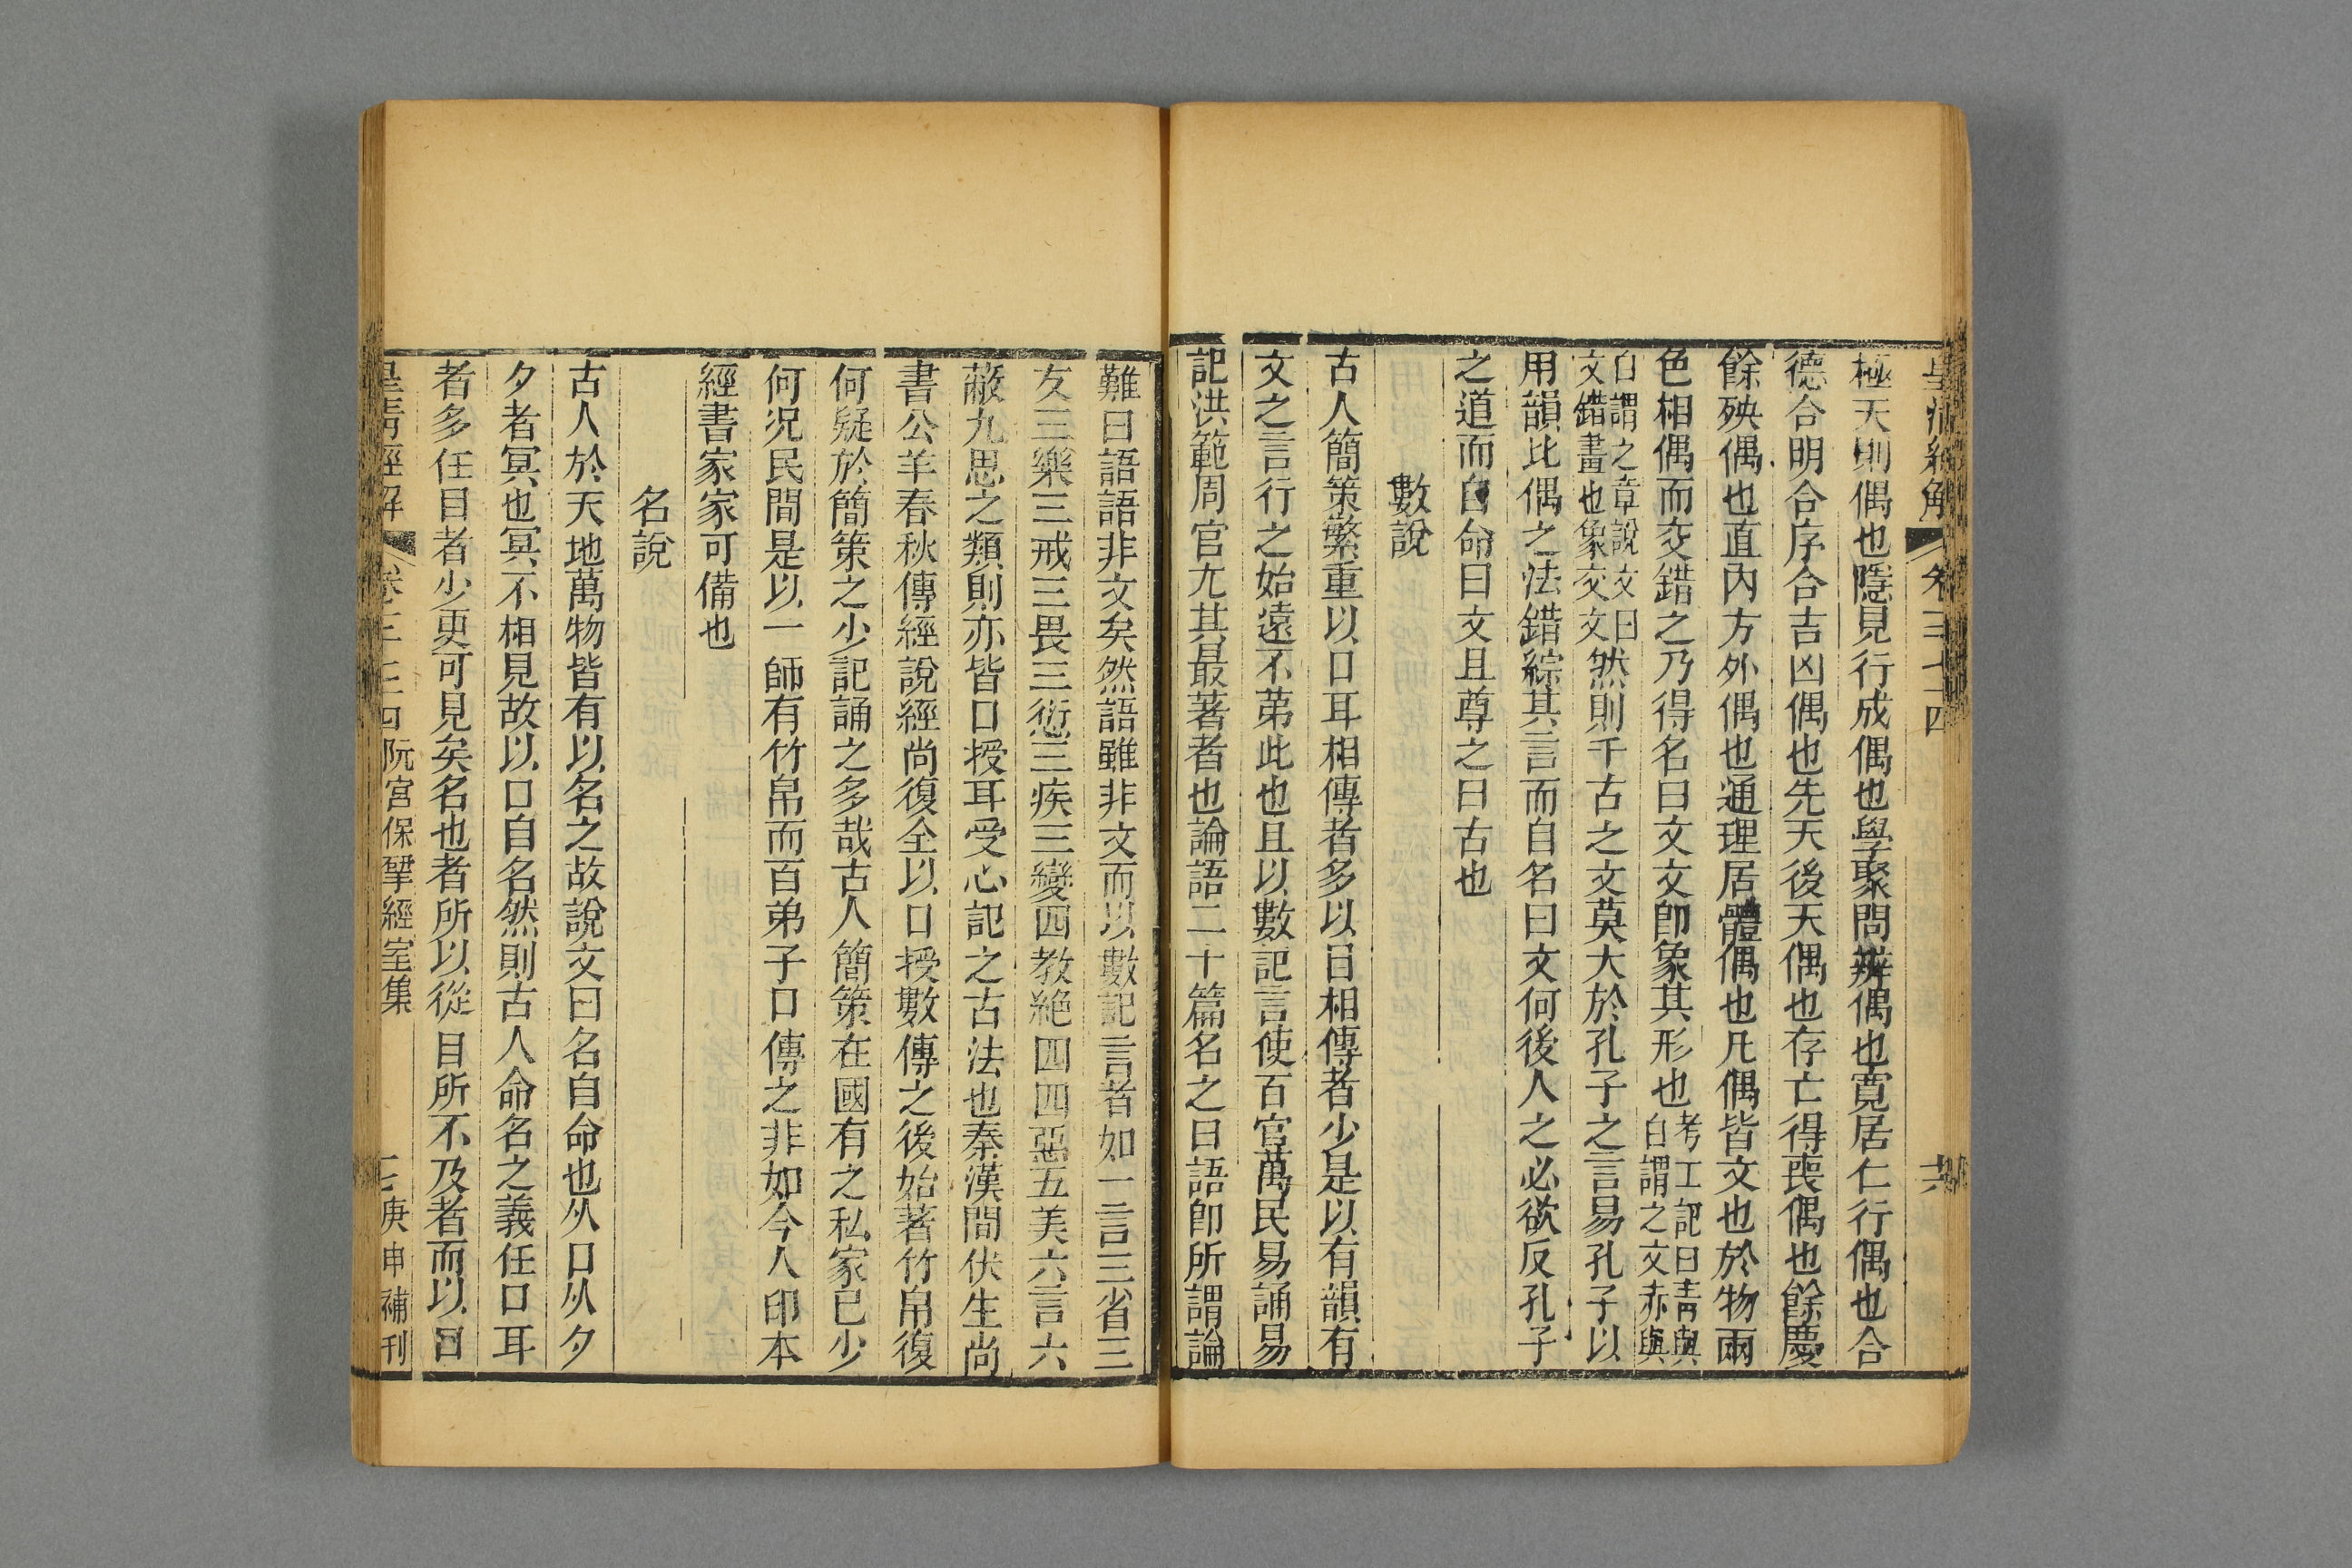 極天則偶也隱見行成偶也學聚問辨偶也寬居仁行偶也合
德合明合序合吉凶偶也先天後天偶也存亡得喪偶也餘慶
餘殃偶也直內方外偶也通理居體偶也凡偶皆文也於物兩
色相偶而交錯之乃得名曰文文卽象其形也考工記曰靑與白謂之文赤與
白謂之章說文曰文錯畫也象交文然則千古之文莫大於孔子之言易孔子以
用韻比偶之法錯綜其言而自名曰文何後人之必欲反孔子
之道而自命曰文且尊之曰古也
數說
古人簡策繁重以口耳相傳者多以目相傳者少是以有韻有
文之言行之始遠不第此也且以數記言使百官萬民易誦易
記洪範周官尤其最著者也論語二十篇名之曰語卽所謂論
難曰語語非文矣然語雖非文而以數記言者如一言三省三
友三樂三戒三畏三愆三疾三變四教絕四四惡五美六言六
蔽九思之類則亦皆口授耳受心記之古法也秦漢間伏生尚
書公羊春秋傳經說經尚復全以口授數傳之後始著竹帛復
何疑於簡策之少記誦之多哉古人簡策在國有之私家已少
何況民間是以一師有竹帛而百弟子口傳之非如今人印本
經書家家可備也
名說
古人於天地萬物皆有以名之故說文曰名自命也从口从夕
夕者冥也冥不相見故以口自名然則古人命名之義任口耳
者多任目者少更可見矣名也者所以從目所不及者而以口
皇淸經解 卷 阮宮保揅經室集 庚申補刊